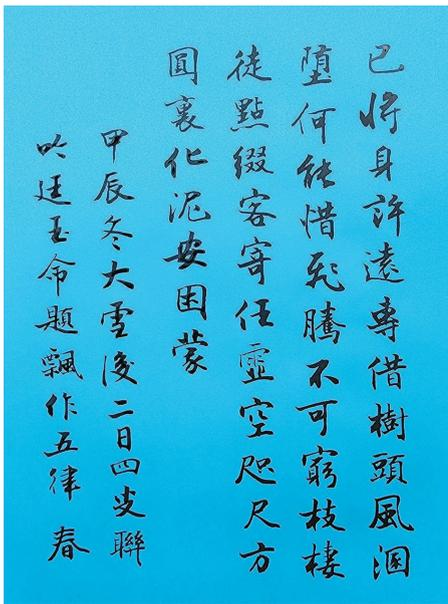 已將身許遠專借樹頭風溷
墮何能惜飛騰不可窮枝棲
徒點綴客寄任虛空咫尺方
圓裏化泥安困蒙
甲辰冬大雪後二日四聯
吟廷玉命題飄作五律 春